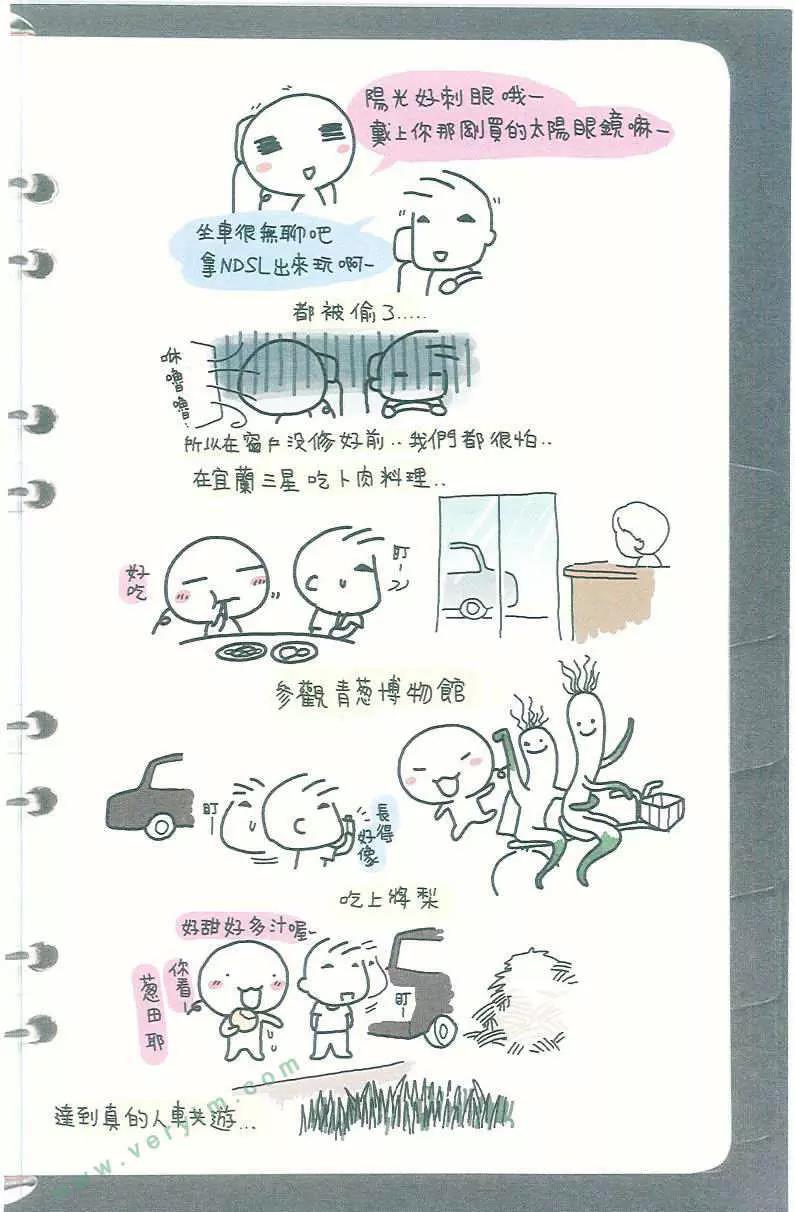 陽光好刺眼哦~
戴上你那剛買的太陽眼鏡嘛~
坐車很無聊吧
拿NDSL出來玩啊~
都被偷了.....
咻
嚕
嚕
所以在窗戶沒修好前..我們都很怕..
在宜蘭三星吃卜肉料理..
好吃
盯~
參觀青葱博物館
盯~
長得
好像
吃上將梨
好甜好多汁喔~
你看~
葱田耶
盯~
達到真的人車共遊...
www.veryim.com